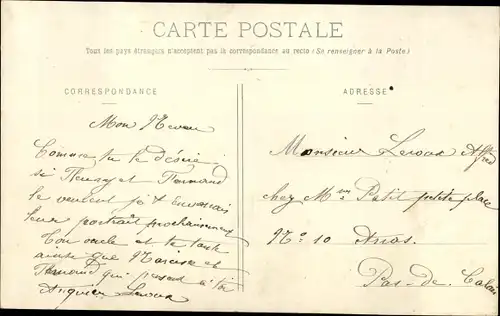 CARTE POSTALE
Tout les pays étrangers n'acceptent pas la correspondance au recto (Se renseigner à la Poste)
CORRESPONDANCE
Mon Neveu
Comme tu le désire
si Fleury et Fernand
le veulent je t'enverrais
leur portrait prochainement
Ton oncle et ta tante
ainsi que Narcisse et
Fernand qui pensent à toi
Leroux
ADRESSE
Monsieur Leroux Alfred
chez Mr Petit petite place
No 10 Arras
Pas-de-Calais